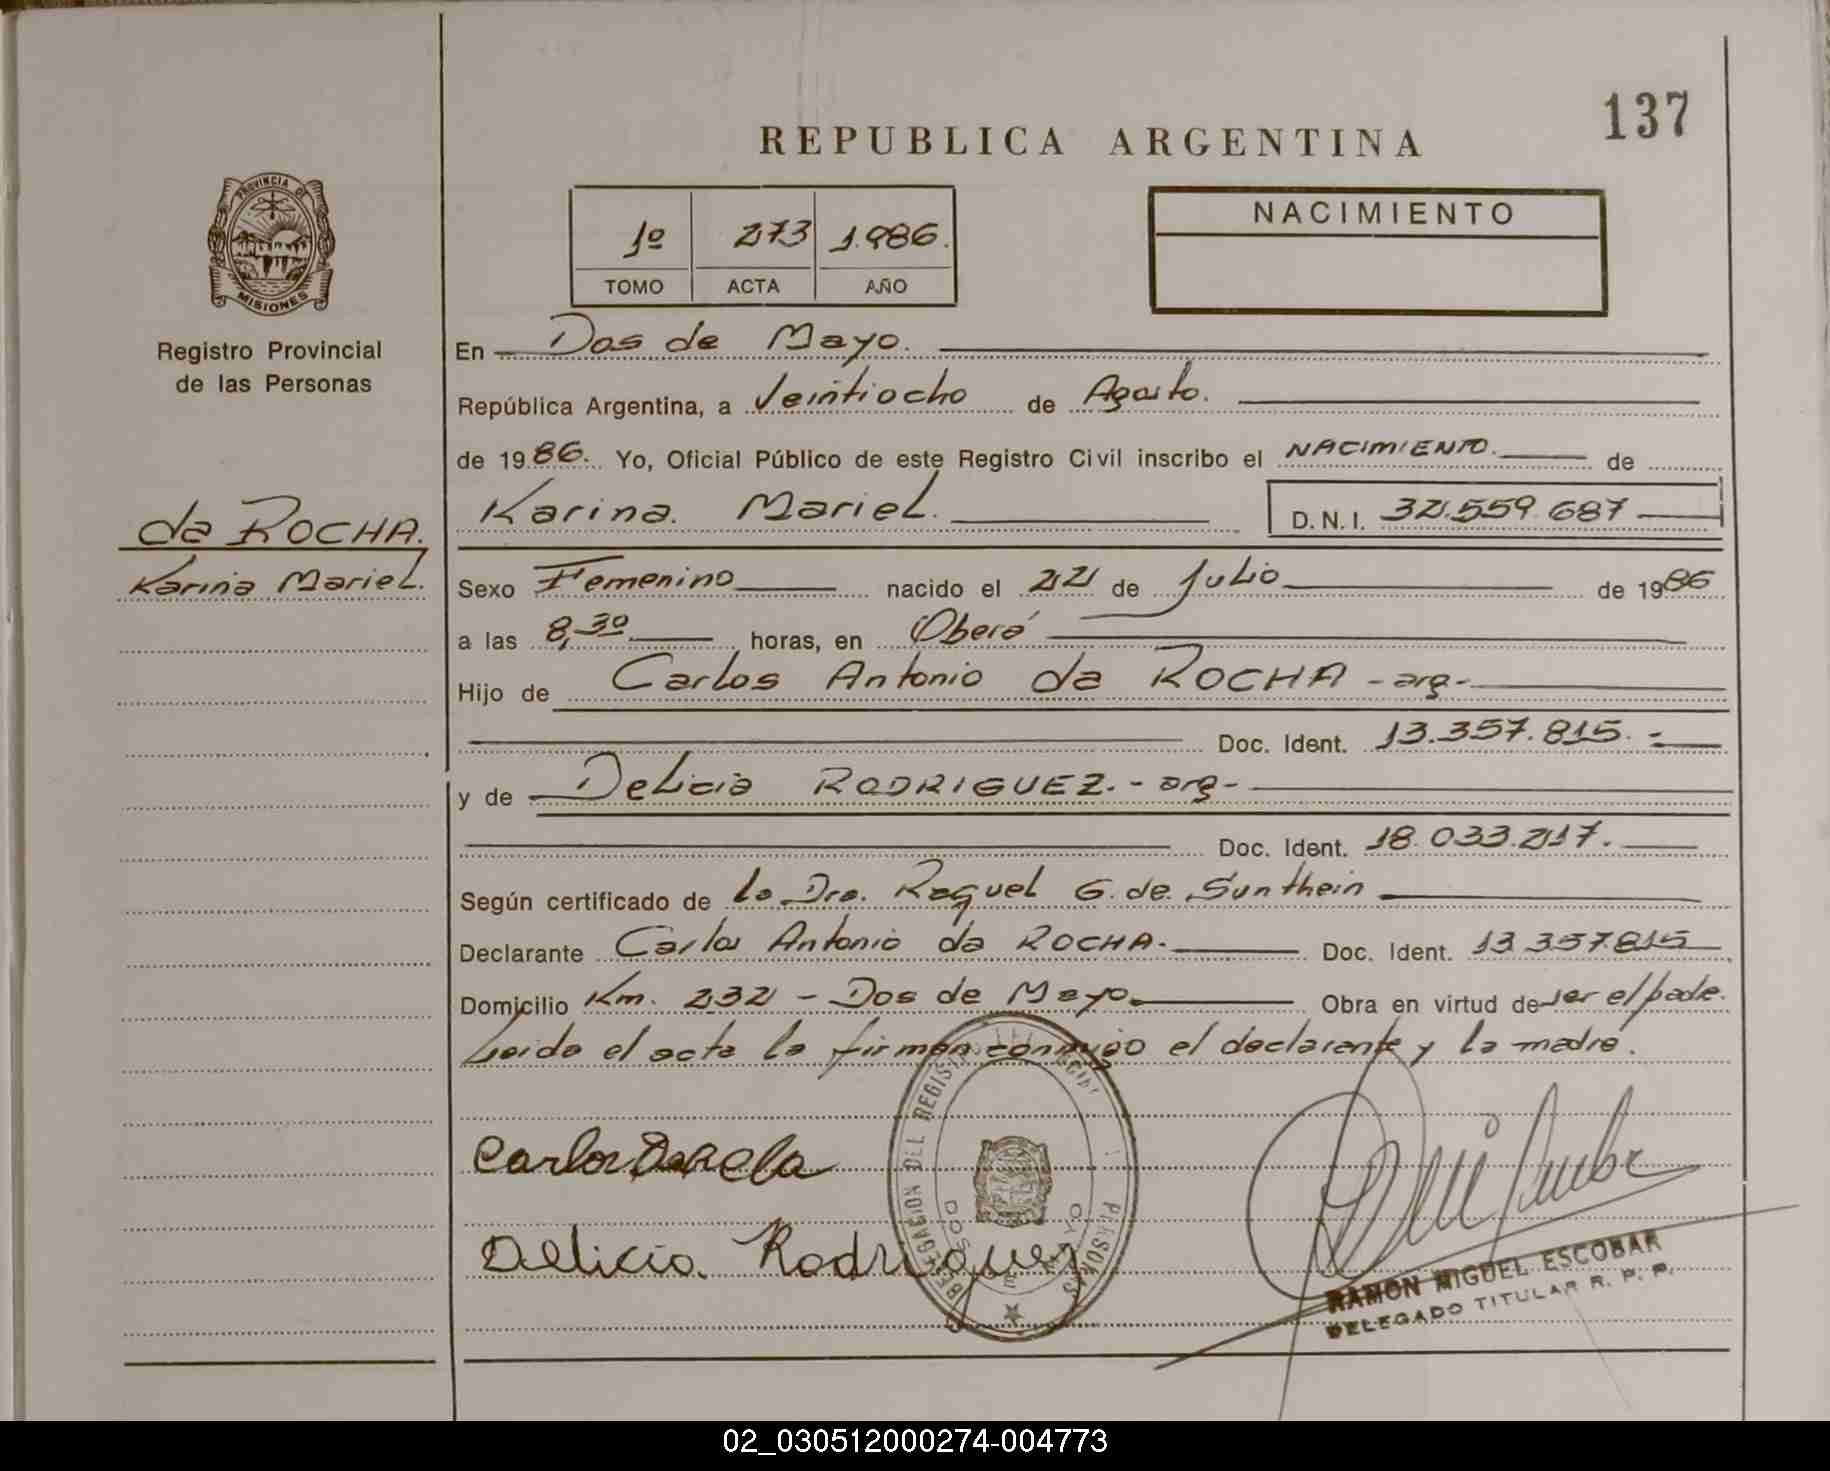 137
REPUBLICA ARGENTINA
PROVINCIA DE
MISIONES
1º 273 1.986.
TOMO ACTA AÑO
NACIMIENTO
Registro Provincial
de las Personas
En Dos de Mayo.
República Argentina, a Veintiocho de Agosto.
de 1986. Yo, Oficial Público de este Registro Civil inscribo el NACIMIENTO. de
Karina Mariel. D.N.I. 32.559.687
da ROCHA.
Karina Mariel.
Sexo Femenino nacido el 22 de Julio de 1986
a las 8,30 horas, en Oberá
Hijo de Carlos Antonio da ROCHA - arg-
Doc. Ident. 13.357.815.-
y de Delicia RODRIGUEZ.- arg-
Doc. Ident. 18.033.217.
Según certificado de la Dra. Raquel G. de Sunthein
Declarante Carlos Antonio da ROCHA. Doc. Ident. 13.357.815
Domicilio Km. 232 - Dos de Mayo. Obra en virtud de ser el padre.
Leida el acta la firman conmigo el declarante y la madre.
Carlos
DELEGACION DEL REGISTRO PERSONAS
DOS DE MAYO
Delicia Rodriguez
RAMON MIGUEL ESCOBAR
DELEGADO TITULAR R. P. P.
02_030512000274-004773